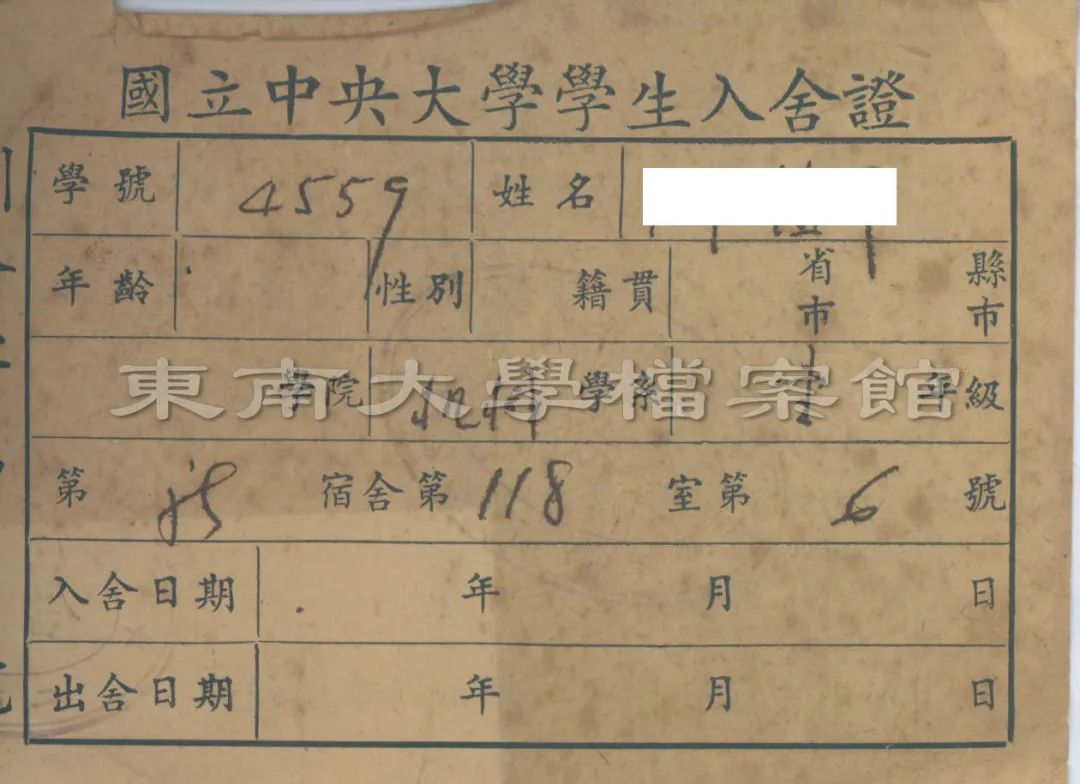 國立中央大學學生入舍證
學號 4559 姓名
年齡 性別 籍貫 省市 縣市
學院 學系 年級
東南大學檔案館
第 宿舍第 118 室第 6 號
入舍日期 年 月 日
出舍日期 年 月 日